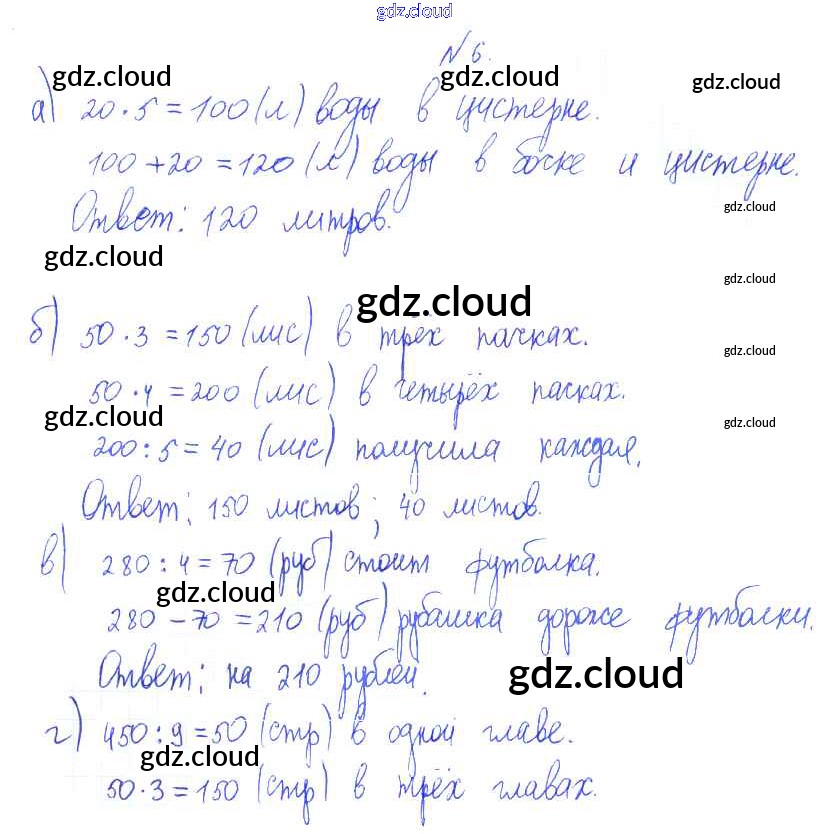 gdz.cloud
№ 6.
gdz.cloud gdz.cloud gdz.cloud
а) 20 · 5 = 100 (л) воды в цистерне.
100 + 20 = 120 (л) воды в бочке и цистерне.
gdz.cloud
Ответ: 120 литров.
gdz.cloud
gdz.cloud
gdz.cloud
б) 50 · 3 = 150 (лис) в трёх пачках.
gdz.cloud
50 · 4 = 200 (лис) в четырёх пасках.
gdz.cloud gdz.cloud
200 : 5 = 40 (лис) получила каждая.
Ответ: 150 листов; 40 листов.
в) 280 : 4 = 70 (руб) стоит футболка.
gdz.cloud
280 – 70 = 210 (руб) рубашка дороже футболки.
Ответ: на 210 рублей.
gdz.cloud
г) 450 : 9 = 50 (стр) в одной главе.
gdz.cloud
50 · 3 = 150 (стр) в трёх главах.